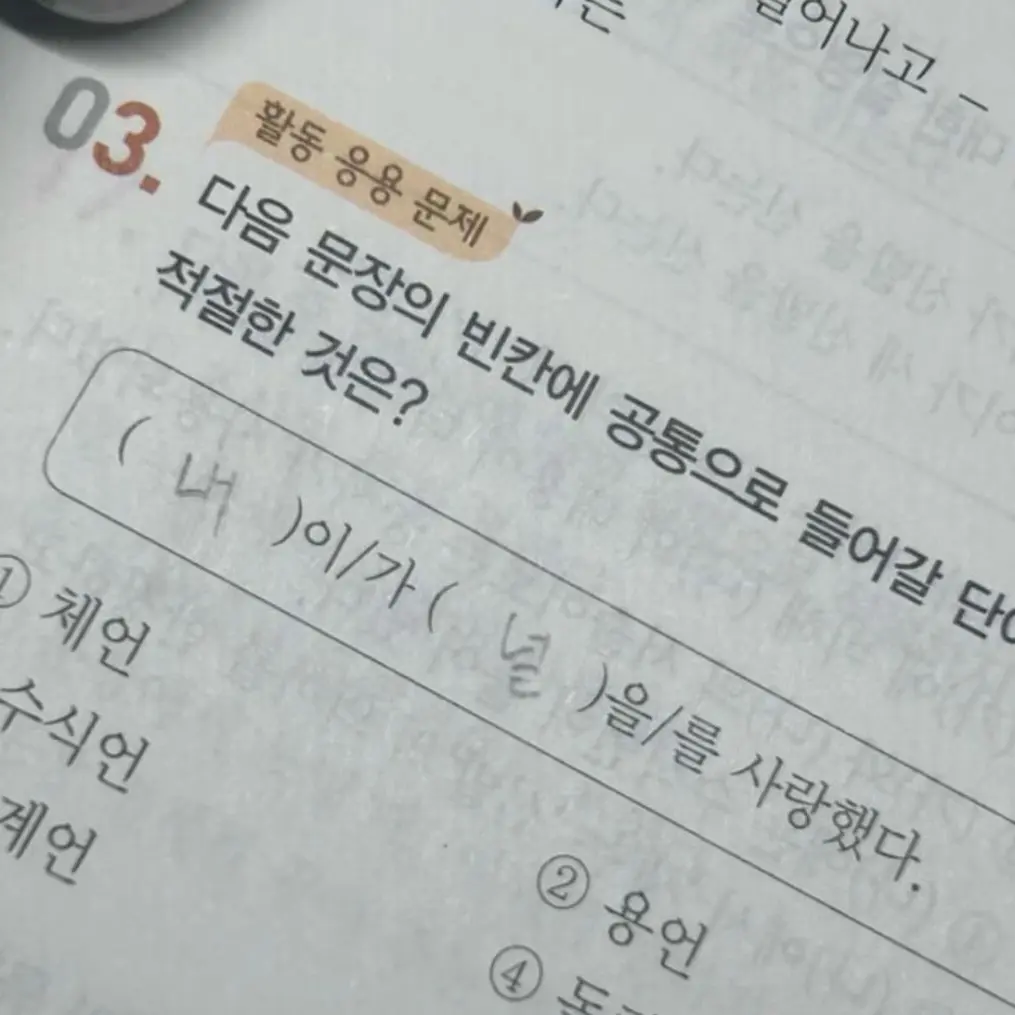 어나고 _
는
03. 활동 응용 문제
다음 문장의 빈칸에 공통으로 들어갈 단어
적절한 것은?
( 내 )이/가 ( 널 )을/를 사랑했다.
① 체언
② 용언
수식언
④
계언